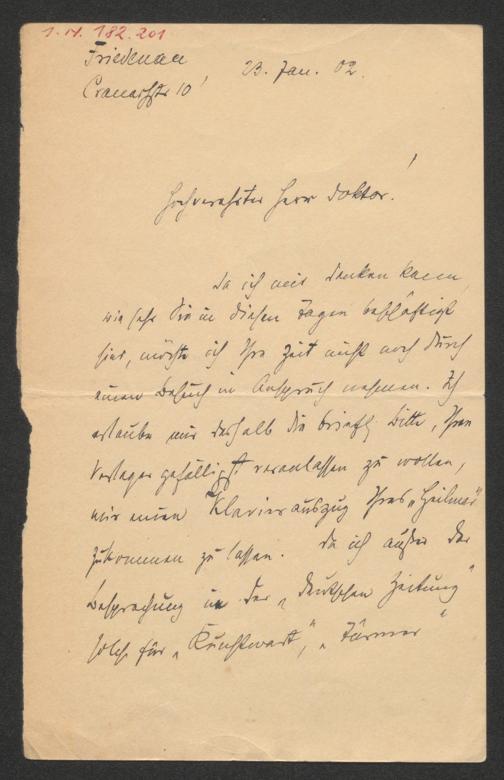 I.N. 182.201
Friedenau
Cranachstr 10
23. Jan. 02.
Hochverehrter Herr Doktor!
Da ich mir denken kann,
wie sehr Sie in diesen Tagen beschäftigt
sind, möchte ich Ihre Zeit nicht noch durch
einen Besuch in Anspruch nehmen. Ich
erlaube mir deshalb die briefl. Bitte, Ihren
Verleger gefälligst veranlassen zu wollen,
mir einen Klavierauszug Ihres „Heilmar"
zukommen zu lassen. Da ich außer der
Besprechung in der „Deutschen Zeitung"
solche für „Kunstwart", „Türmer"